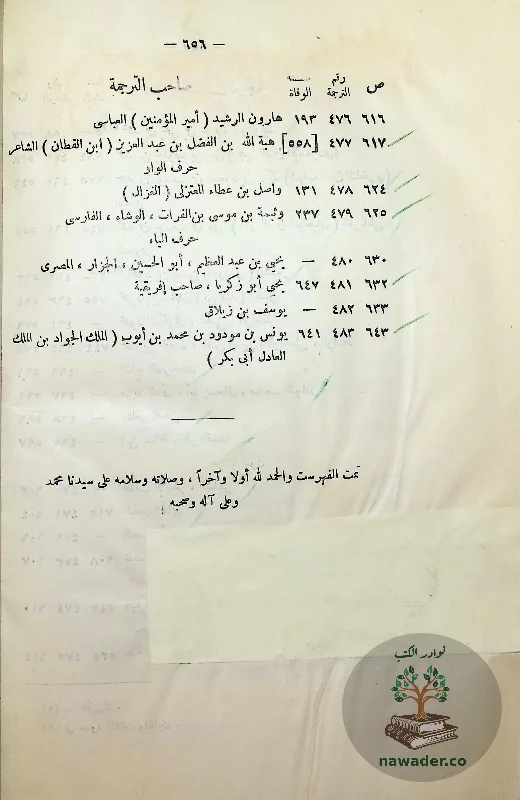 — ٦٥٦ —
ص رقم الترجمة سنة الوفاة صاحب الترجمة
٦١٦ ٤٧٦ ١٩٣ هارون الرشيد ( أمير المؤمنين ) العباسى
٦١٧ ٤٧٧ [٥٥٨] هبة الله بن الفضل بن عبد العزيز ( ابن القطان ) الشاعر
حرف الواو
٦٢٤ ٤٧٨ ١٣١ واصل بن عطاء المعتزلى ( الغزال )
٦٢٥ ٤٧٩ ٢٣٧ وثيمة بن موسى بن الفرات ، الوشاء ، الفارسى
حرف الياء
٦٣٠ ٤٨٠ — يحيى بن عبد العظيم ، أبو الحسين ، الجزار ، المصرى
٦٣٢ ٤٨١ ٦٤٧ يحيى أبو زكريا ، صاحب إفريقية
٦٣٣ ٤٨٢ — يوسف بن زيلاق
٦٤٣ ٤٨٣ ٦٤١ يونس بن مودود بن محمد بن أيوب ( الملك الجواد بن الملك
العادل أبى بكر )
تمت الفهرست والحمد لله أولا وآخراً ، وصلاته وسلامه على سيدنا محمد
وعلى آله وصحبه
نوادر الكتب
nawader.co